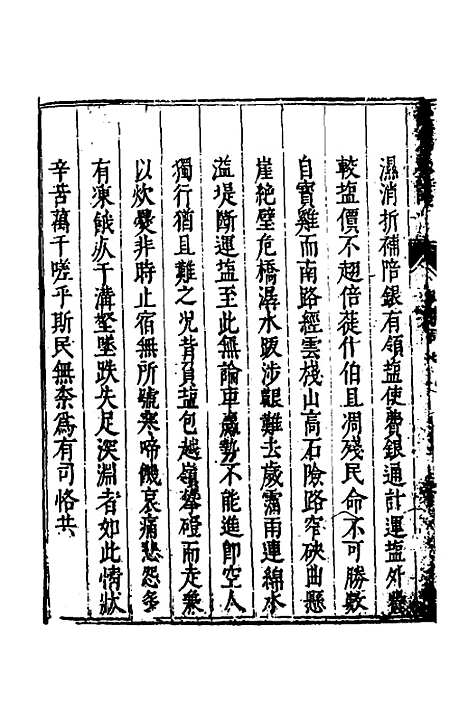 濕消折補賠銀有領塩使費銀通計運塩外費
較塩價不趐倍蓰什伯且凋殘民命不可勝数
自寳雞而南路經雲棧山高石險路窄硤曲懸
崖絶壁危橋潺水跋涉艱難去歲霪雨連綿水
溢堤断運塩至此無論車驘勢不能進即空人
獨行猶且難之况背負塩包越嶺攀磴而走兼
以炊爨非時止宿無所號寒啼饑哀痛悲怨多
有凍餓仆于溝壑墜跌失足深淵者如此情狀
辛苦萬千嗟乎斯民無柰爲有司恪共